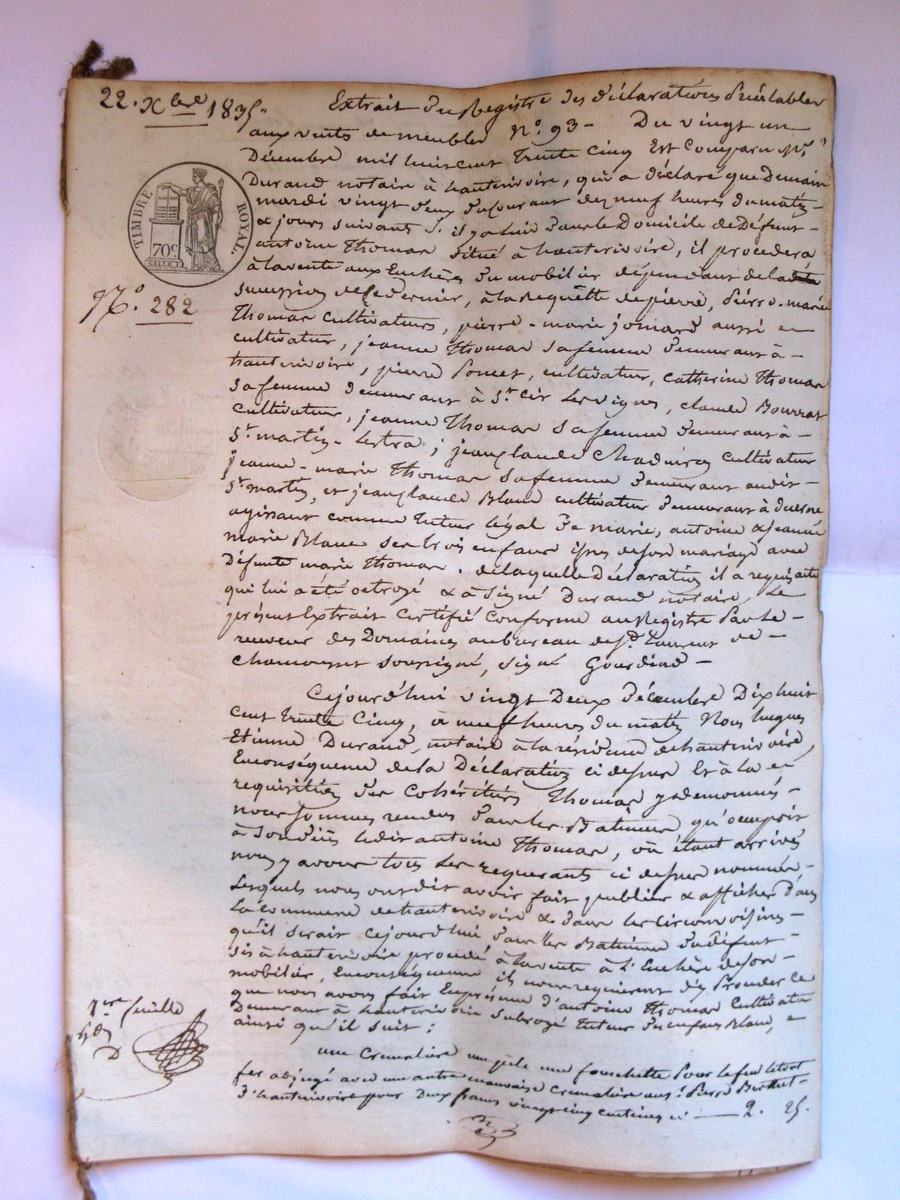 22. Xbre 1835.
Extrait du Registre des déclarations Préalables
aux ventes de meubles N.° 93 - Du vingt un
Décembre mil huit cent trente cinq Est Comparu Mr.
Durand notaire à hauterivoire, qui a déclaré que Demain
mardi vingt deux du courant dès neuf heures du matin
& jours suivant s'il y a lieu dans le Domicile de Défunt
antoine Thomas situé à hauterivoire, il procedera
à la vente aux Enchères du mobilier dépendant de la dite
succession de ce dernier, à la Requette de pierre, pierre-marie
Thomas cultivateurs, pierre-marie joinard aussi
cultivateur, jeanne Thomas sa femme demeurant à
hauterivoire, pierre Poncet, cultivateur, catherine Thomas
sa femme demeurant à St. cir les vignes, claude Bourrat
cultivateur, jeanne Thomas sa femme demeurant à
St. martin-Lestra; jean claude Chaduiron cultivateur
jeanne-marie Thomas sa femme demeurant audit
St. martin, et jean claude Blanc cultivateur demeurant à
agissant comme tuteur légal de marie, antoine & jeanne
marie Blanc ses trois enfans issus de son mariage avec
défunte marie Thomas. de laquelle Déclaration il a requis acte
qui lui a été octroyé & a signé Durand notaire, Le
présent Extrait certifié Conforme au Registre Par le
receveur des Domaines au bureau de St. Laurent de
Chamousset soussigné, signé Gourdiat
TIMBRE ROYAL.
70c
N.° 282
Cejourd'hui vingt Deux Décembre Dix huit
cent trente Cinq, à neuf heures du matin Nous hugues
Etienne Durand, notaire à la résidence de hauterivoire,
En conséquence de la Déclaration ci dessus Et à la
requisition des cohéritiers Thomas y denommés
nous sommes rendus dans les Batimens qu'occupoit
à son décès ledit antoine Thomas, où étant arrivés
nous y avons tous les requerants ci dessus nommés
Lesquels nous ont dit avoir fait publier & afficher dans
La commune de hauterivoire & dans les circonvoisines
qu'il serait cejourd'hui dans les Batimens du défunt
sis à hauterivoire procédé à la vente à L'Enchère de son
mobilier, En conséquence ils nous requierent d'y Proceder ce
que nous avons fait En présence d'antoine Thomas Cultivateur
Demeurant à hauterivoire subrogé tuteur des enfans Blanc,
ainsi qu'il suit:
une Cremalière une pele une fourchette Pour le feu le tout
fer adjugé avec une autre mauvaise cremalière au S. Pierre Berthet
d'hauterivoire pour deux francs vingt cinq centimes ci — 2. 25.
1.ere feuille
D